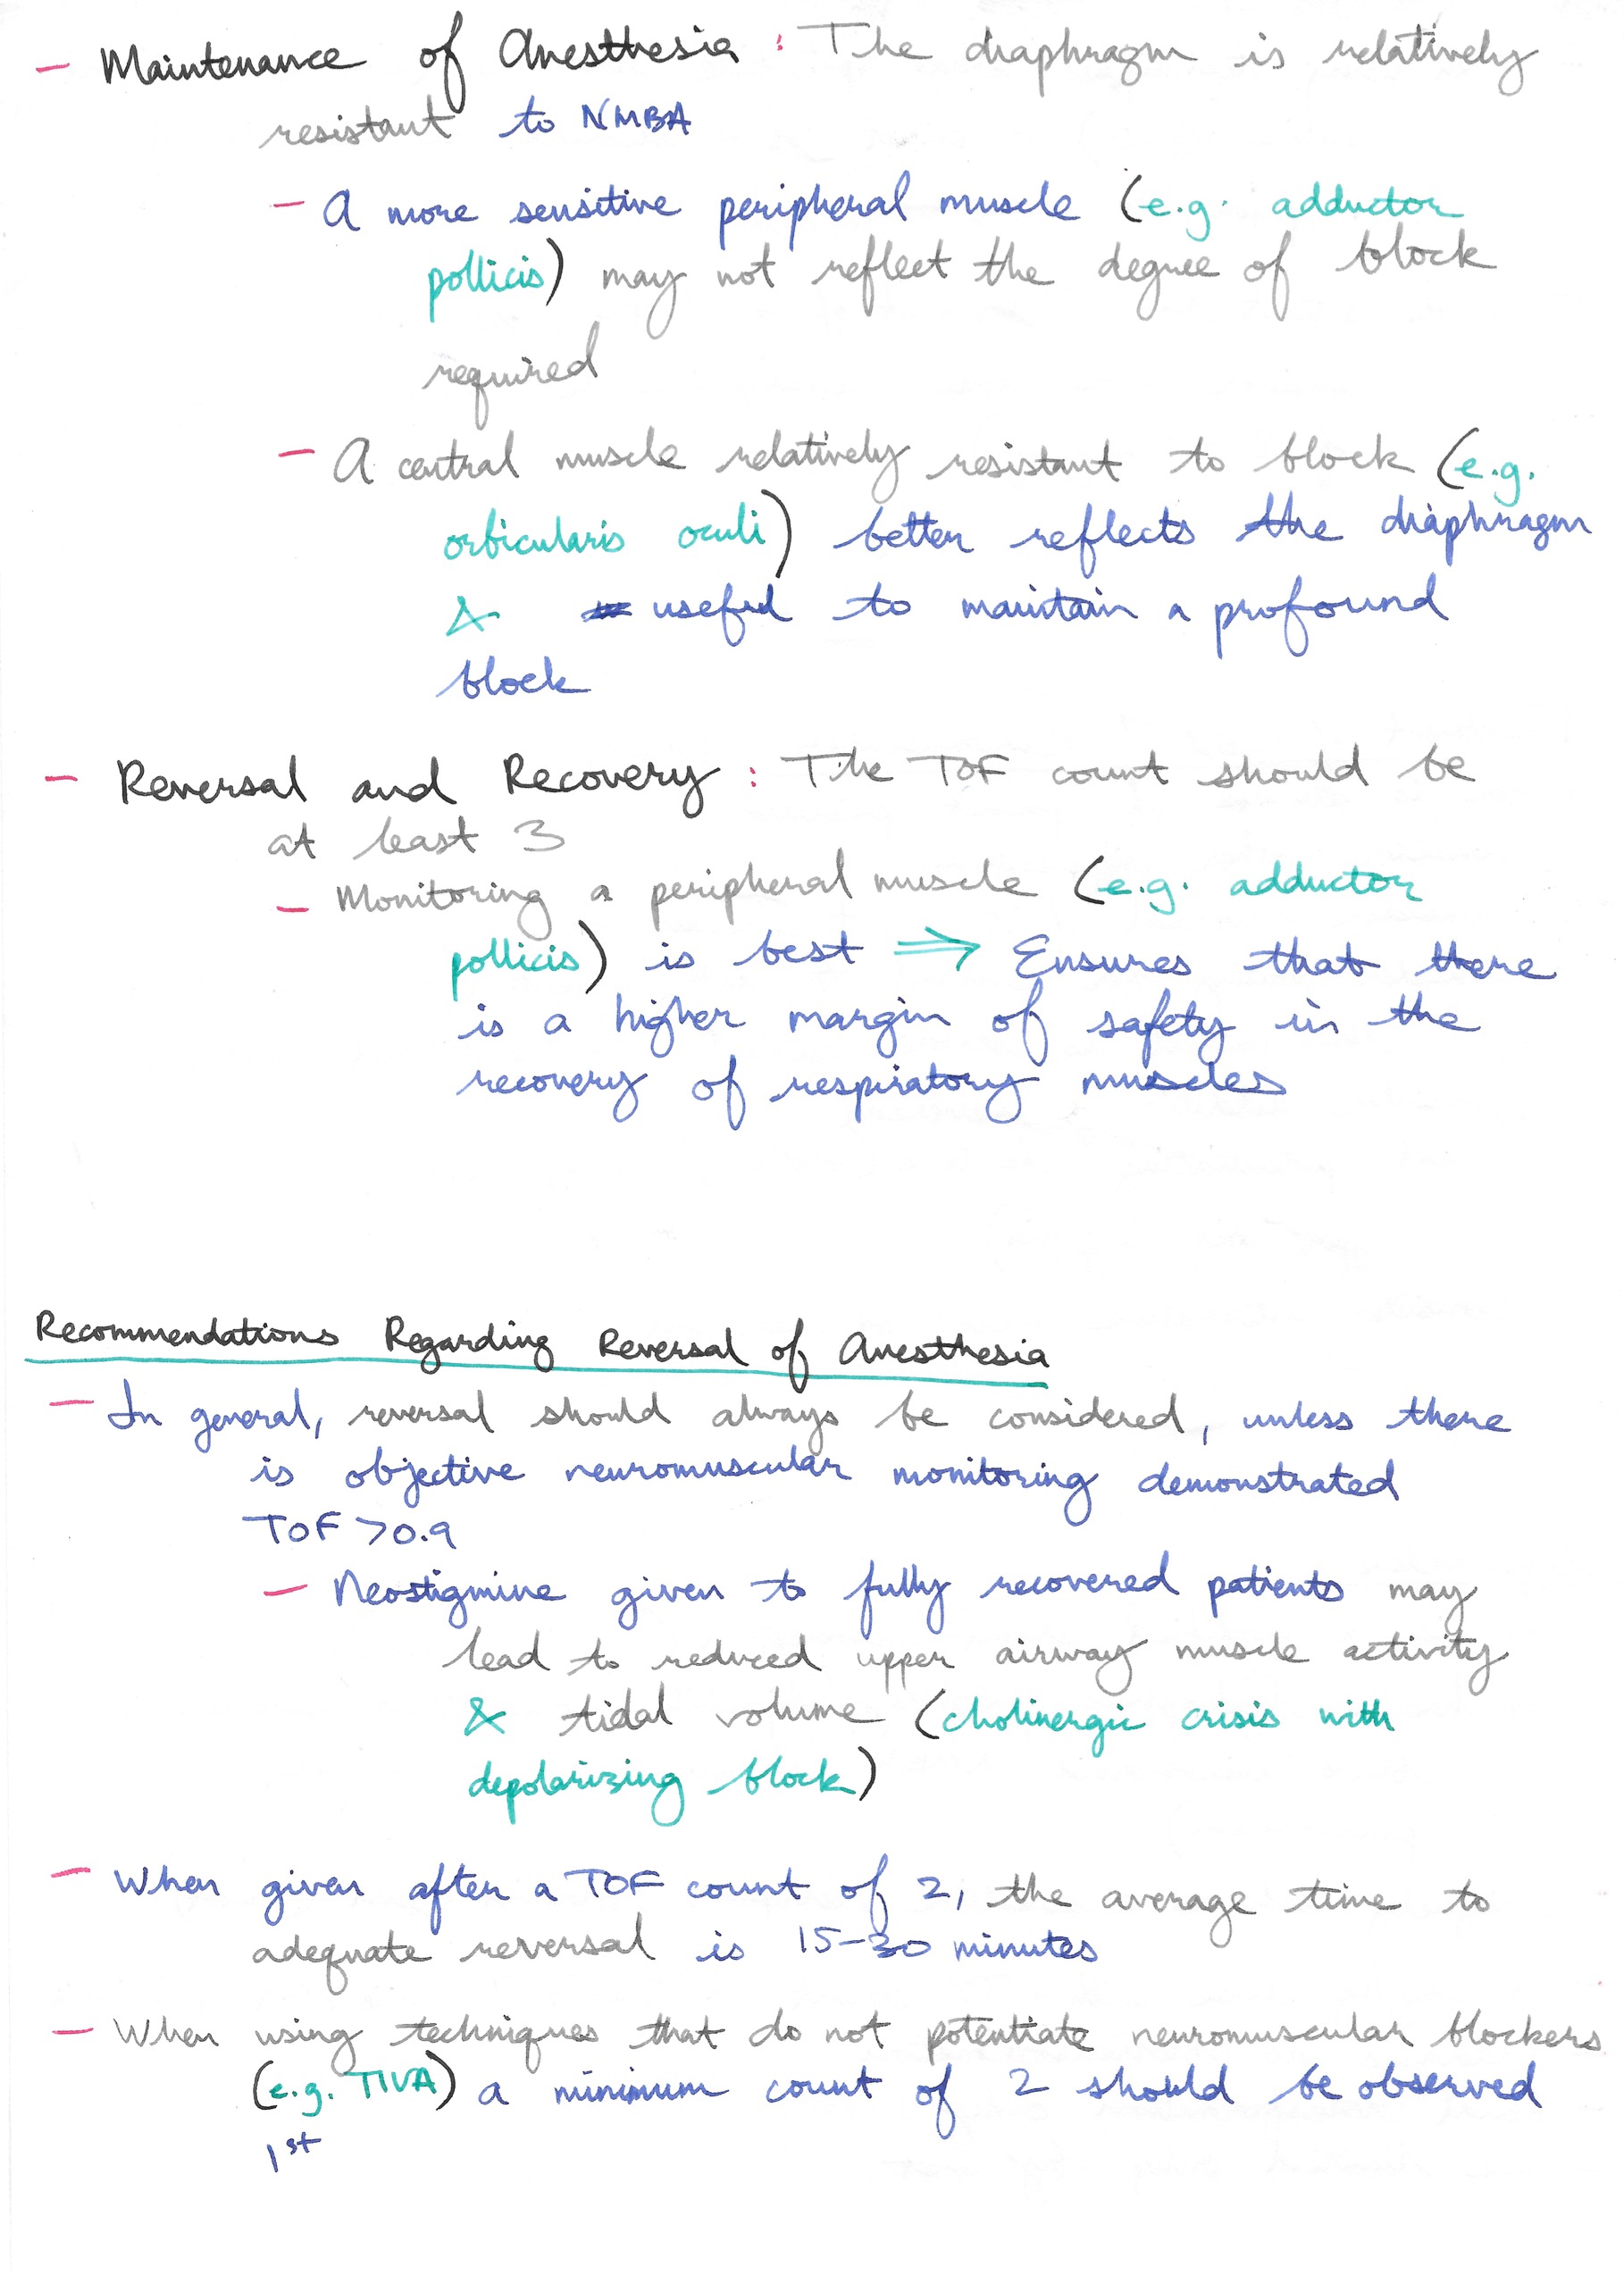 - Maintenance of Anesthesia : The diaphragm is relatively
resistant to NMBA
- A more sensitive peripheral muscle (e.g. adductor
pollicis) may not reflect the degree of block
required
- A central muscle relatively resistant to block (e.g.
orbicularis oculi) better reflects the diaphragm
& useful to maintain a profound
block
- Reversal and Recovery : The TOF count should be
at least 3
- Monitoring a peripheral muscle (e.g. adductor
pollicis) is best ⇒ Ensures that there
is a higher margin of safety in the
recovery of respiratory muscles
Recommendations Regarding Reversal of Anesthesia
- In general, reversal should always be considered, unless there
is objective neuromuscular monitoring demonstrated
TOF >0.9
- Neostigmine given to fully recovered patients may
lead to reduced upper airway muscle activity
& tidal volume (cholinergic crisis with
depolarizing block)
- When given after a TOF count of 2, the average time to
adequate reversal is 15-30 minutes
- When using techniques that do not potentiate neuromuscular blockers
(e.g. TIVA) a minimum count of 2 should be observed
1st